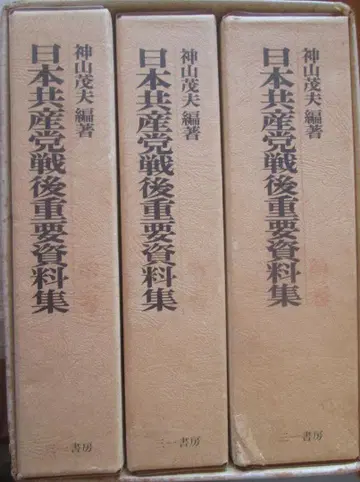 神山茂夫 編著
日本共産党戦後重要資料集
三一書房
神山茂夫 編著
日本共産党戦後重要資料集
三一書房
神山茂夫 編著
日本共産党戦後重要資料集
三一書房